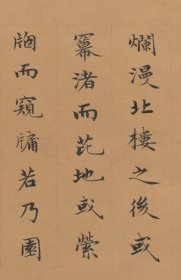 爛漫北樓之後或
羃渚而芘地或縈
牕而窺牖若乃園